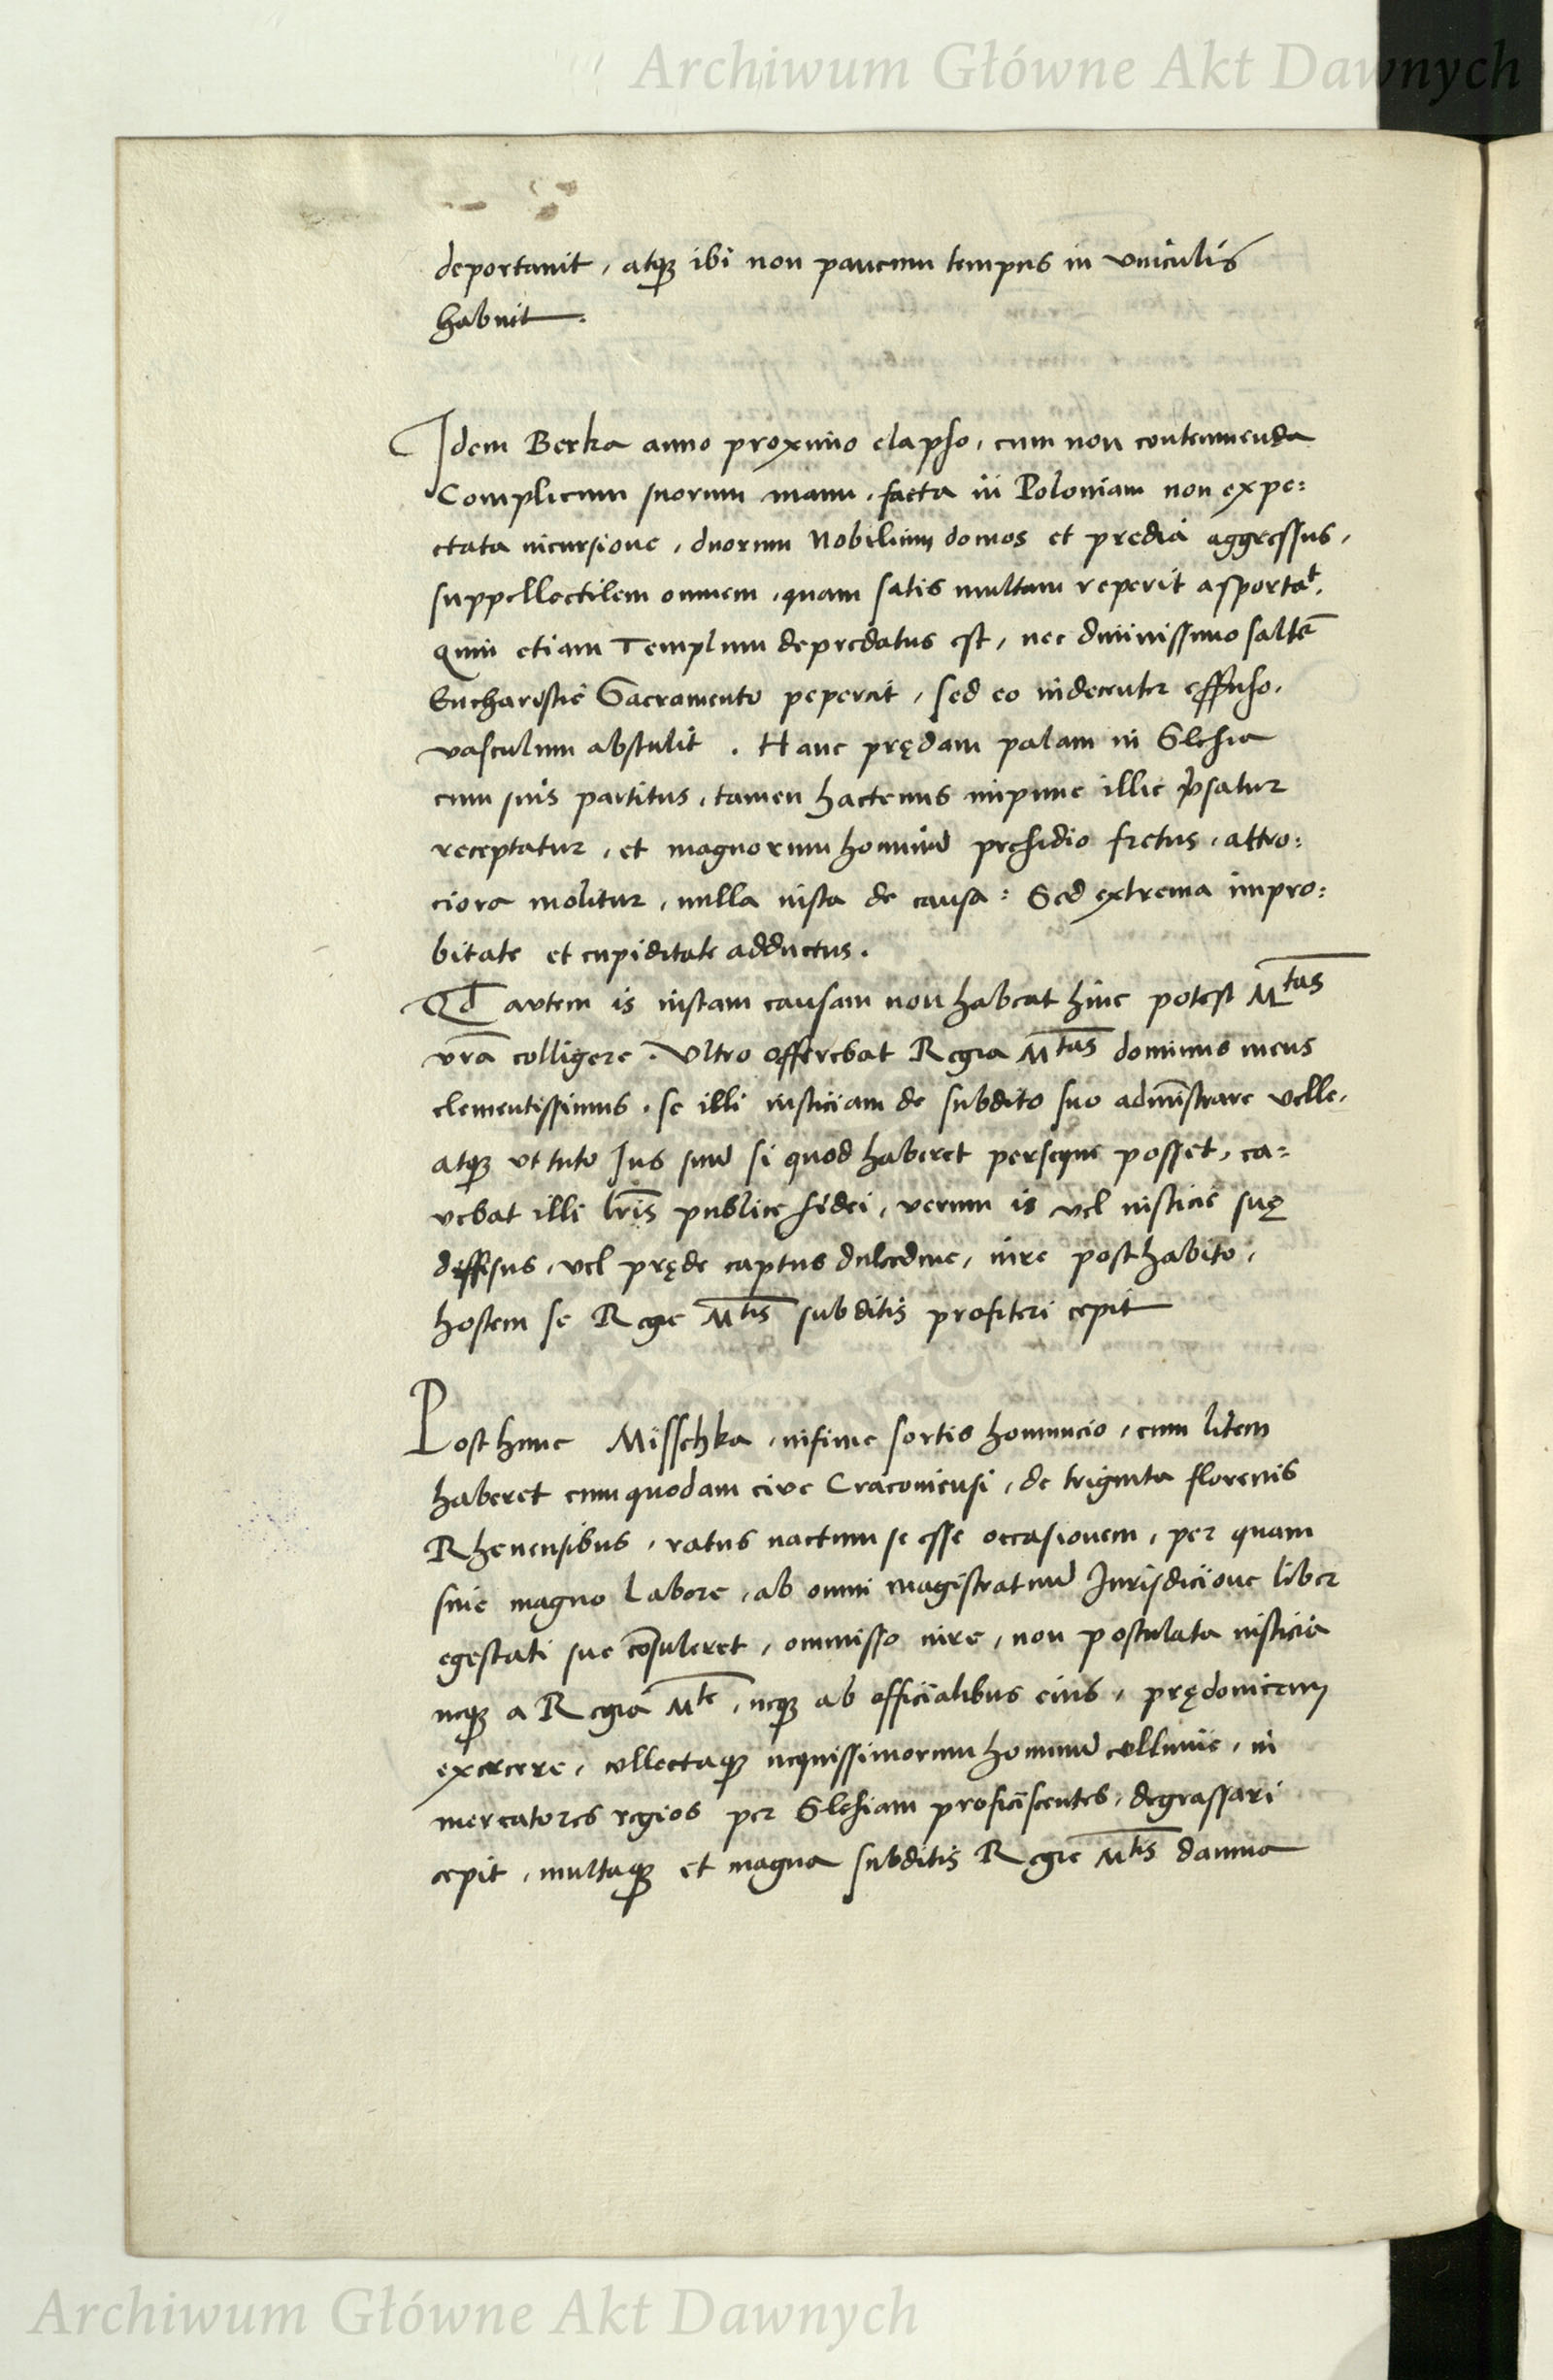 Archiwum Główne Akt Dawnych
deportauit, atqꝫ ibi non paucum tempus in vinculis
habuit.
Idem Berka anno proximo elapso, cum non contemnenda
Complicum suorum manu, facta in Poloniam non expe:
ctata incursione, duorum Nobilium domos et predia aggressus,
suppellectilem omnem, quam satis multam reperit asportat,
Quin etiam Templum depredatus est, nec diuinissimo saltē
Eucharistie Sacramento pepercit, sed eo indecenter effuso,
vasculum abstulit. Hanc prędam palam in Slesia
cum suis partitus, tamen hactenus impune illic v̓satur
receptatur, et magnorum hominū presidio fretus, attro:
ciora molitur, nulla iusta de causa: Sed extrema impro:
bitate et cupiditate adductus.
Qd autem is iustam causam non habeat hinc potest Mtas
vrā colligere. Vltro offerebat Regia Mtas dominus meus
clementissimus, se illi iusticiam de subdito suo administrare velle,
atqꝫ vt tuto Ius suū si quod haberet persequi posset, ca=
vebat illi lrīs publice fidei, verum is vel iusticie suę
diffisus, vel pręde captus dulcedine, iure posthabito,
hostem se Regie Mtis subditis profiteri cepit
Post hunc Misschka, infime sortis homuncio, cum litem
haberet cum quodam ciue Cracouiensi, de triginta florenis
Rhenensibus, ratus nactum se esse occasionem, per quam
sine magno labore, ab omni magistratuū Iurisdicione liber
egestati sue cōsuleret, ommisso iure, non postulata iusticia
neqꝫ a Regia Mte, neqꝫ ab officialibus eius, prędonicam
exercere, collectaqꝫ nequissimorum hominū colluuie, in
mercatores regios per Slesiam proficiscentes, degrassari
cepit, multaqꝫ et magna subditis Regie Mtis damna
Archiwum Główne Akt Dawnych